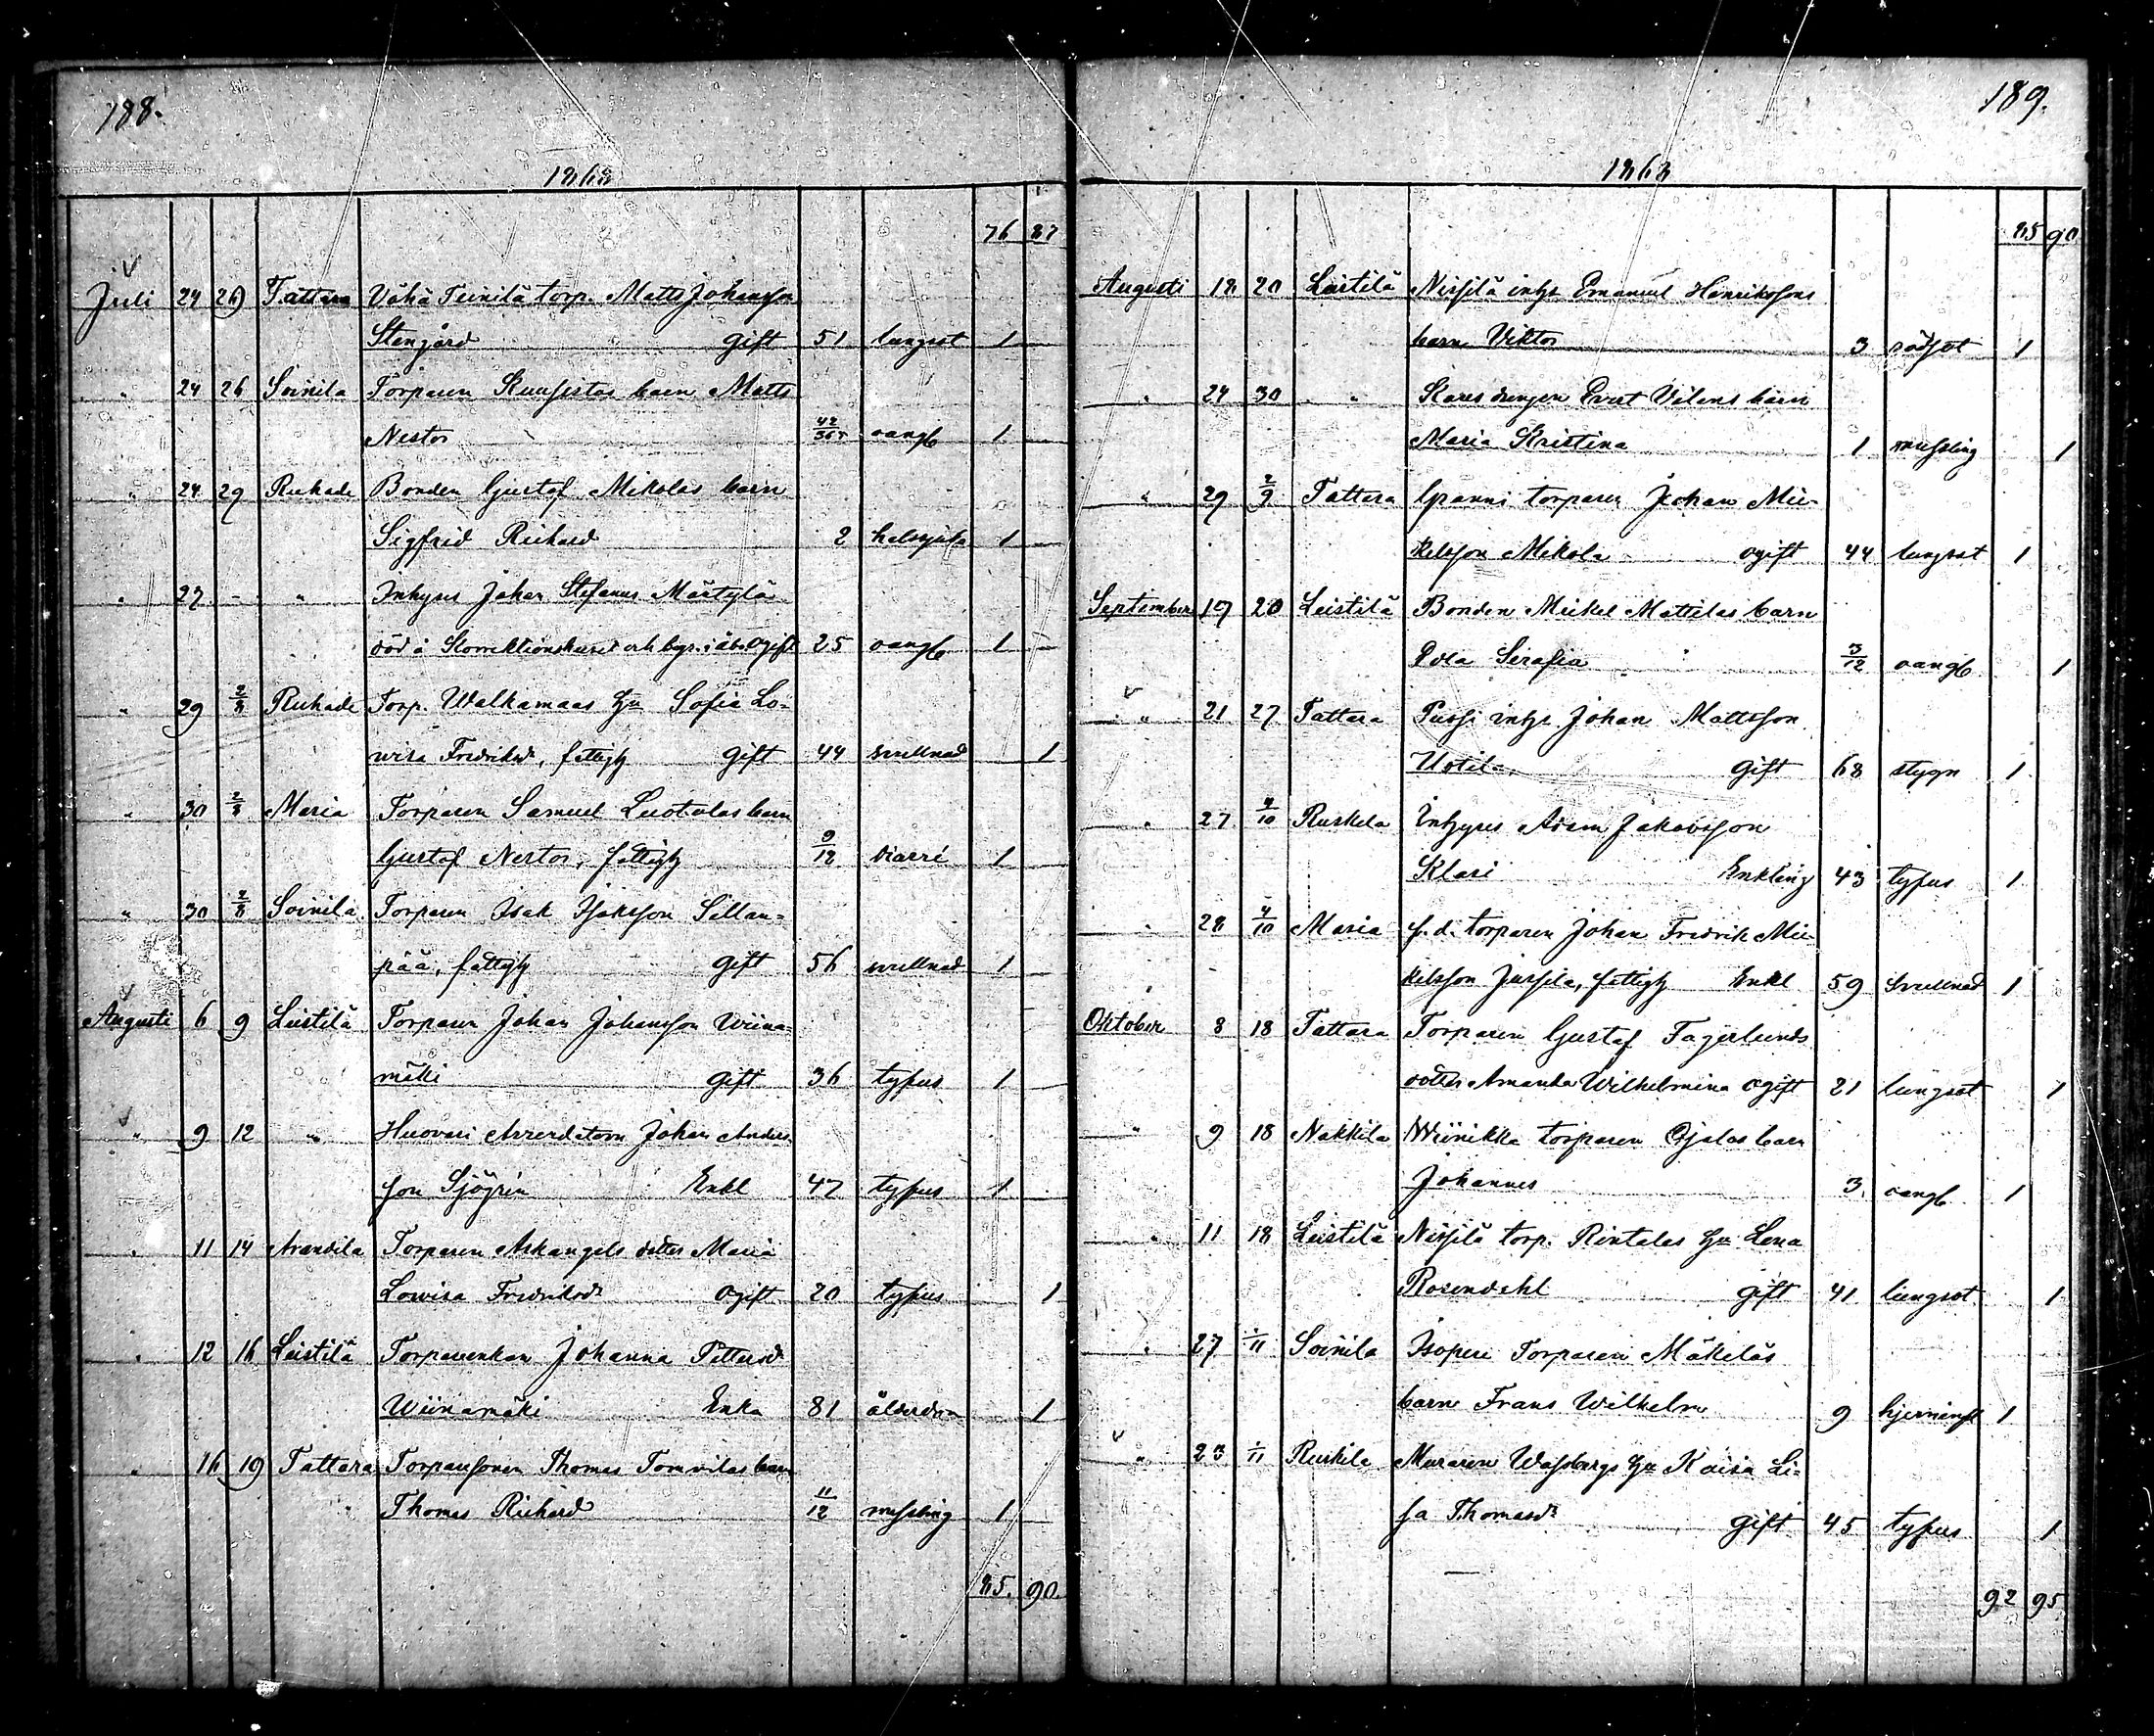 188.
1868
76 87
Juli 24 26 Tattara Vähä Teinilä torp. Matts Johansson
Stengård gift 51 lungsot 1
" 24 26 Soinila Torparen Kuusistos barn Matts
Nestor 42/365 oangf 1
" 24 29 Ruhade Bonden Gustaf Mikolas barn
Sigfrid Richard 2 halssjuka 1
" 27 - " Inhyses Johan Stefanus Mäntylä
död å Korrektionshuset och begr. i Åbo Ogift 25 oangf 1
" 29 2/8 Ruhade Torp. Walkamaas Hu Sofia Lo-
wisa Fredriksd, fattigh gift 44 svullnad 1
" 30 2/8 Maria Torparen Samuel Luotolas barn
Gustaf Nestor, fattigh 9/12 diarré 1
" 30 2/8 Soinila Torparen Isak Isaksson Sillan-
pää, fattigh gift 56 svullnad 1
Augusti 6 9 Leistilä Torparen Johan Johansson Wiina-
mäki gift 36 typus 1
" 9 12 " Huovari Arrendatorn Johan Anders-
son Sjögren Enkl 47 typus 1
" 11 14 Arandila Torparen Arkangels dotter Maria
Lowisa Fredriksdr Ogift 20 typus 1
" 12 16 Leistilä Torpareenkan Johanna Pettersd
Wiinamäki Enka 81 ålderdom 1
" 16 19 Tattara Torparesonen Thomas Tomvilas barn
Thomas Richard 11/12 messling 1
85. 90.
189.
1868
85 90
Augusti 18 20 Leistilä Nissilä inhs Emanuel Henrikssons
barn Viktor 3 rödsot 1
" 24 30 " Kares drengen Evert Vilens barn
Maria Kristina 1 messling 1
" 29 2/9 Tattara Granni torparen Johan Mic-
kelsson Mikola ogift 44 lungsot 1
September 19 20 Leistilä Bonden Mickel Mattilas barn
Ida Serafia 3/12 oangf 1
" 21 27 Tattara Pussi inhs Johan Mattsson
Uotila gift 68 stygn 1
" 27 4/10 Ruskela Inhyses Adam Jakobsson
Klari Enkling 43 typus 1
" 28 4/10 Maria f. d. torparen Johan Fredrik Mic-
kelsson Jussila, fattigh Enkl 59 svullnad 1
Oktober 8 18 Tattara Torparen Gustaf Fagerlunds
dotter Amanda Wilhelmina Ogift 21 lungsot 1
" 9 18 Nakkila Wiinikka torparen Ojalas barn
Johannes 3 oangf 1
" 11 18 Leistilä Nissilä torp. Rintalas Hu Lena
Rosendahl gift 41 lungsot 1
" 27 1/11 Soinila Isoperi Torparen Mäkeläs
barn Frans Wilhelm 9 hjerninfl 1
" 23 1/11 Ruskila Muraren Wassbergs Hu Kaisa Li-
sa Thomasdr gift 45 typus 1
92 95